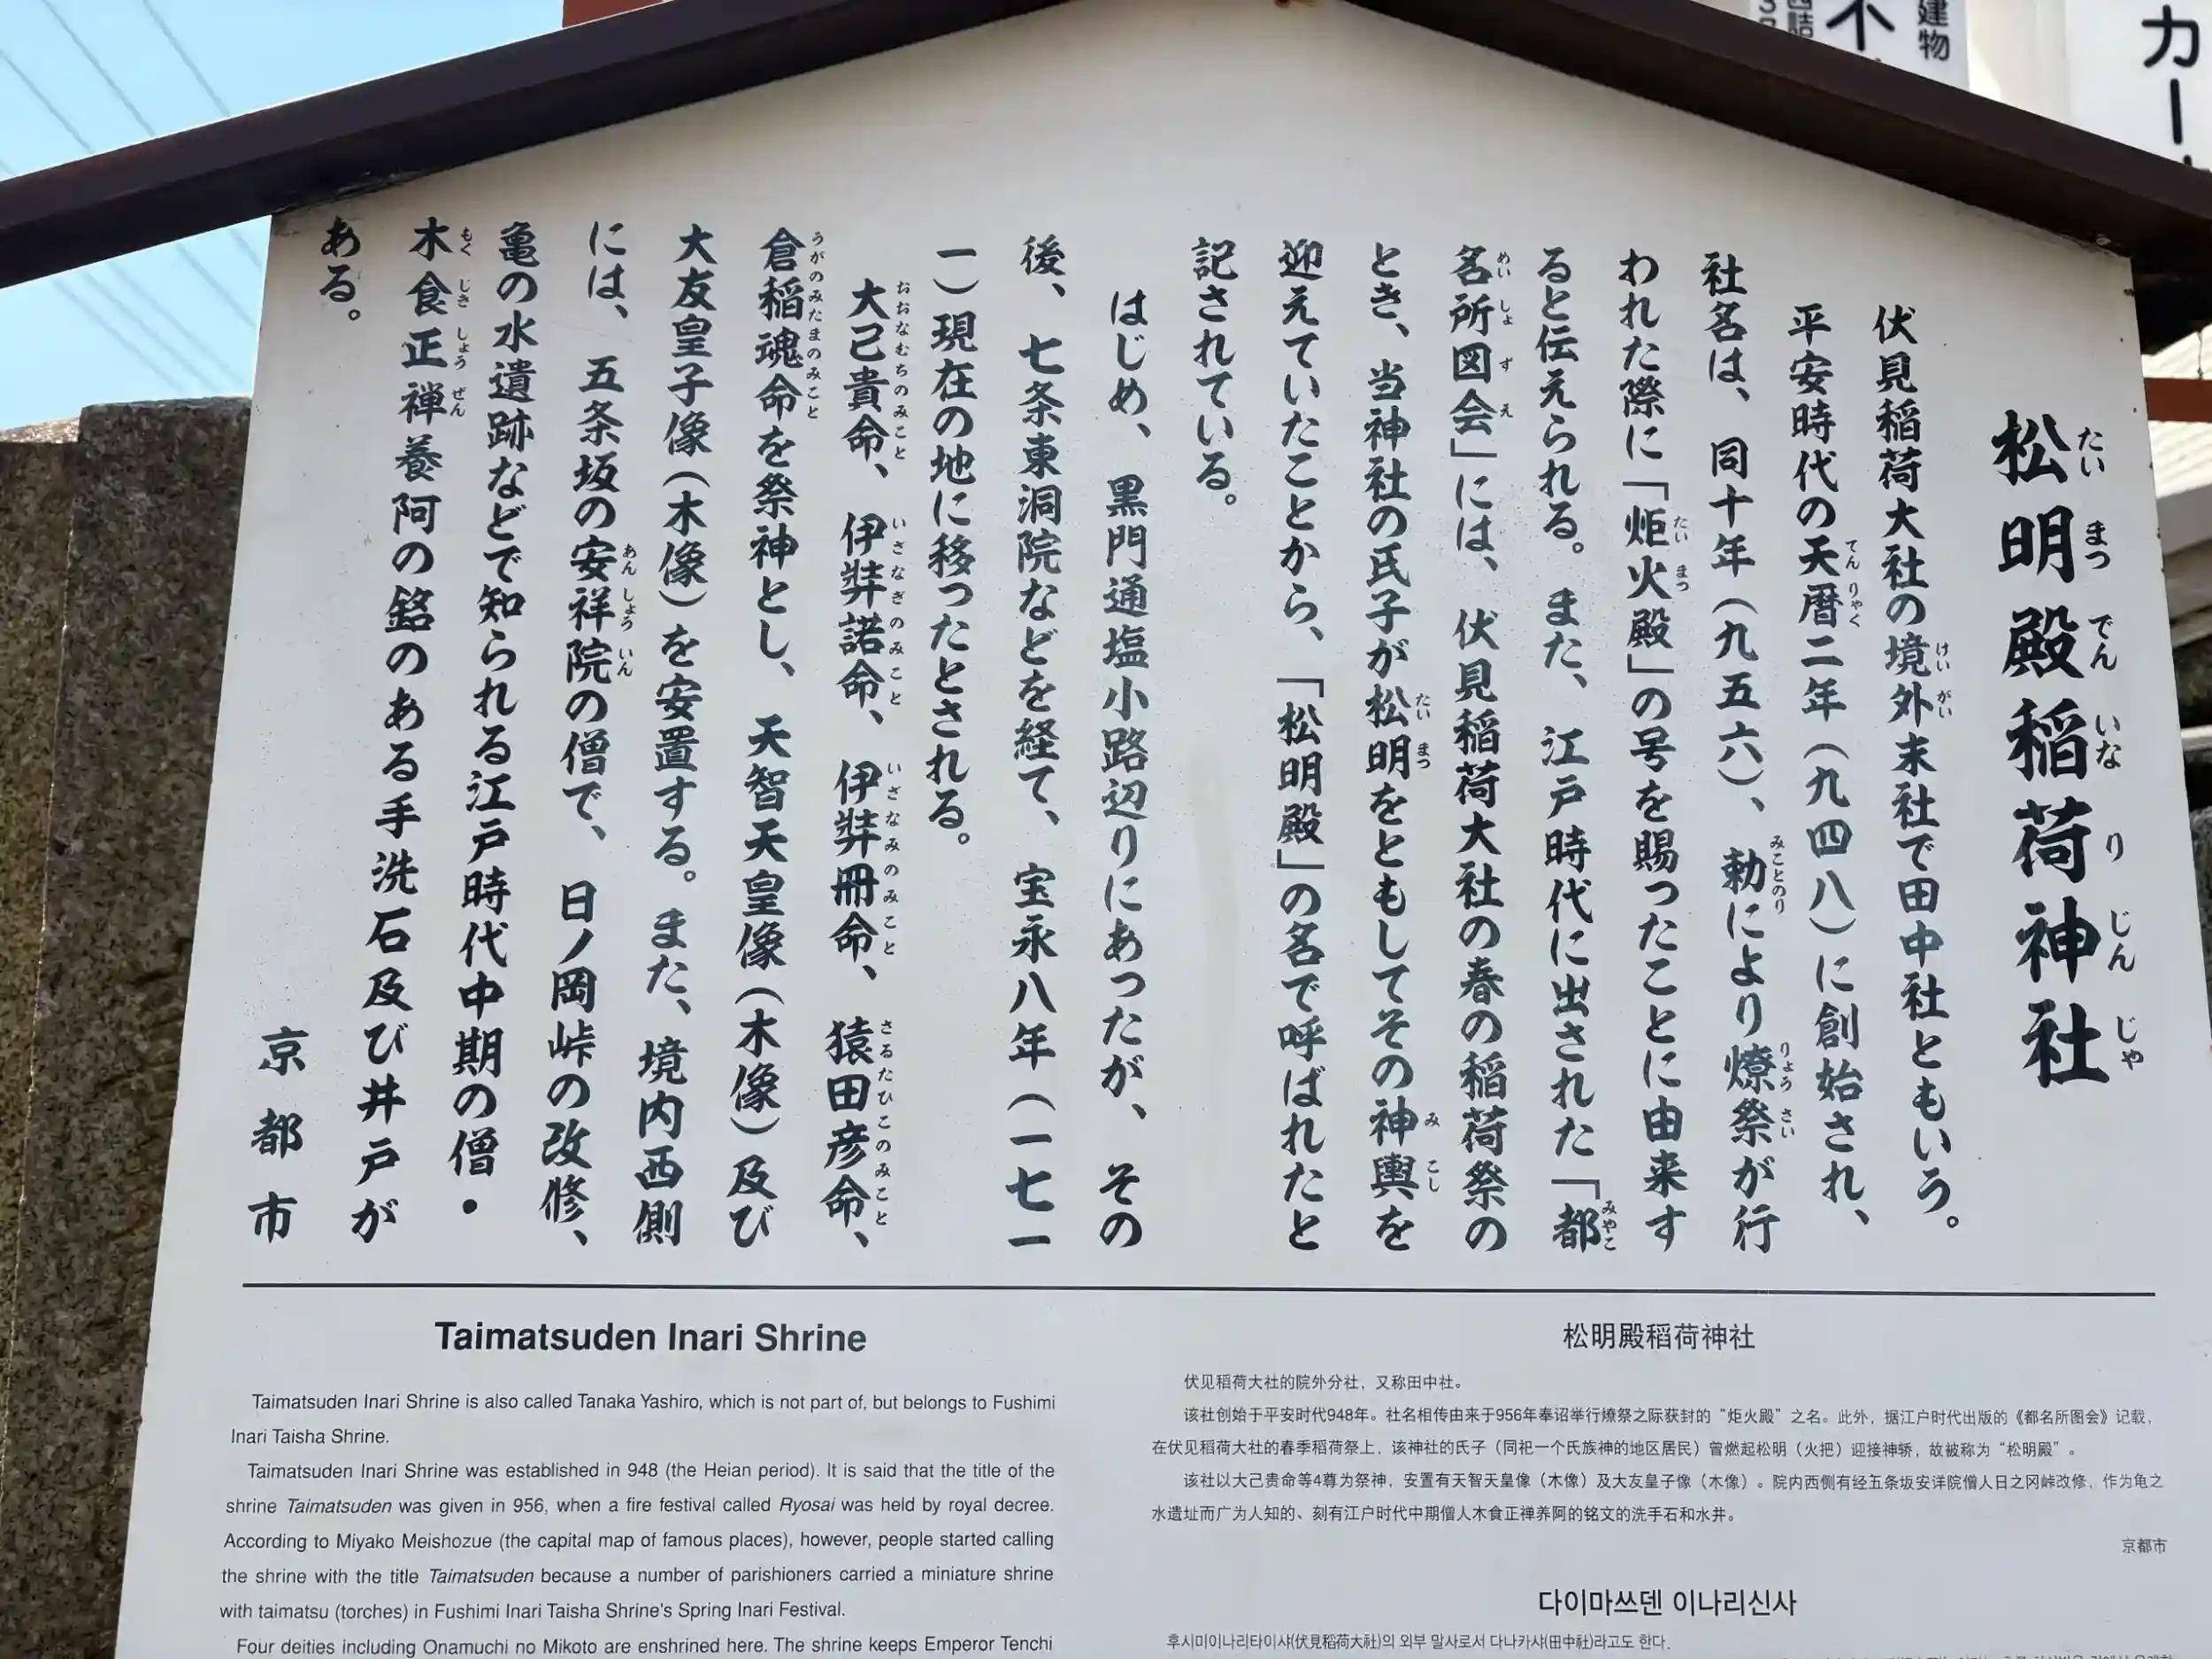 松明殿稲荷神社
たいまつでんいなりじんじゃ
伏見稲荷大社の境外末社で田中社ともいう。
けいがい
平安時代の天暦二年（九四八）に創始され、
てんりゃく
社名は、同十年（九五六）、勅により燎祭が行
みことのり りょうさい
われた際に「炬火殿」の号を賜ったことに由来す
たいまつ
ると伝えられる。また、江戸時代に出された「都
みやこ
名所図会」には、伏見稲荷大社の春の稲荷祭の
めいしょずえ
とき、当神社の氏子が松明をともしてその神輿を
たいまつ みこし
迎えていたことから、「松明殿」の名で呼ばれたと
記されている。
はじめ、黒門通塩小路辺りにあったが、その
後、七条東洞院などを経て、宝永八年（一七一
一）現在の地に移ったとされる。
大己貴命、伊弉諾命、伊弉冊命、猿田彦命、
おおなむちのみこと いさなぎのみこと いざなみのみこと さるたひこのみこと
倉稲魂命を祭神とし、天智天皇像（木像）及び
うがのみたまのみこと
大友皇子像（木像）を安置する。また、境内西側
には、五条坂の安祥院の僧で、日ノ岡峠の改修、
あんしょういん
亀の水遺跡などで知られる江戸時代中期の僧・
木食正禅養阿の銘のある手洗石及び井戸が
もくじきしょうぜん
ある。
京都市
Taimatsuden Inari Shrine
Taimatsuden Inari Shrine is also called Tanaka Yashiro, which is not part of, but belongs to Fushimi
Inari Taisha Shrine.
Taimatsuden Inari Shrine was established in 948 (the Heian period). It is said that the title of the
shrine Taimatsuden was given in 956, when a fire festival called Ryosai was held by royal decree.
According to Miyako Meishozue (the capital map of famous places), however, people started calling
the shrine with the title Taimatsuden because a number of parishioners carried a miniature shrine
with taimatsu (torches) in Fushimi Inari Taisha Shrine's Spring Inari Festival.
Four deities including Onamuchi no Mikoto are enshrined here. The shrine keeps Emperor Tenchi
松明殿稻荷神社
伏见稻荷大社的院外分社，又称田中社。
该社创始于平安时代948年。社名相传由来于956年奉诏举行燎祭之际获封的“炬火殿”之名。此外，据江户时代出版的《都名所图会》记载，
在伏见稻荷大社的春季稻荷祭上，该神社的氏子（同祀一个氏族神的地区居民）曾燃起松明（火把）迎接神轿，故被称为“松明殿”。
该社以大己贵命等4尊为祭神，安置有天智天皇像（木像）及大友皇子像（木像）。院内西侧有经五条坂安详院僧人日之冈峠改修，作为龟之
水遗址而广为人知的、刻有江户时代中期僧人木食正禅养阿的铭文的洗手石和水井。
京都市
다이마쓰덴 이나리신사
후시미이나리타이샤(伏見稲荷大社)의 외부 말사로서 다나카샤(田中社)라고도 한다.
建物
カー